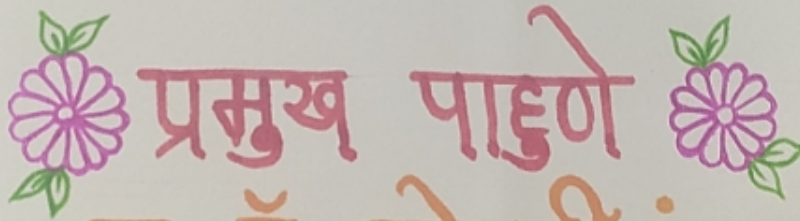 प्रमुख पाहुणे